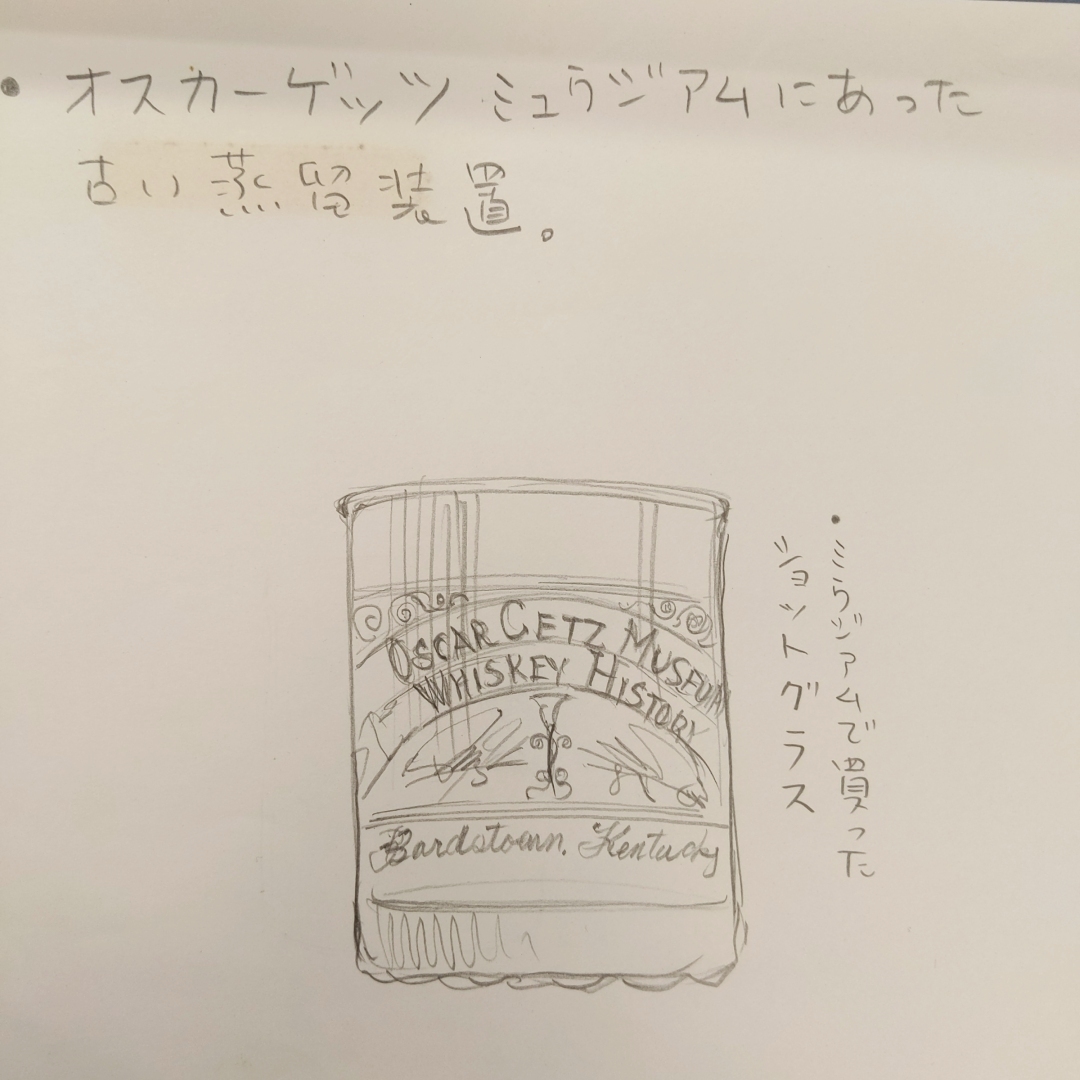 ・オスカーゲッツ ミュラジアムにあった
古い蒸留装置。
OSCAR GETZ MUSEUM
WHISKEY HISTORY
Bardstown. Kentucky
・ミラジアムで買った
ショットグラス